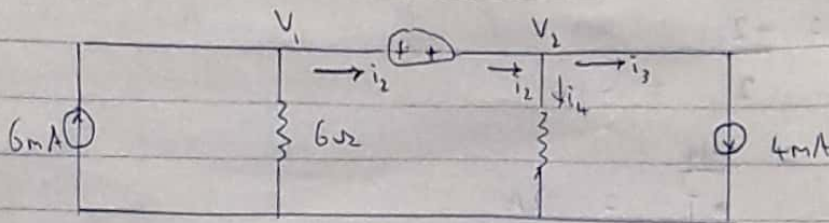 V₁ V₂
+ +
i₂ i₂ i₃
i₄
6mA 6Ω 4mA